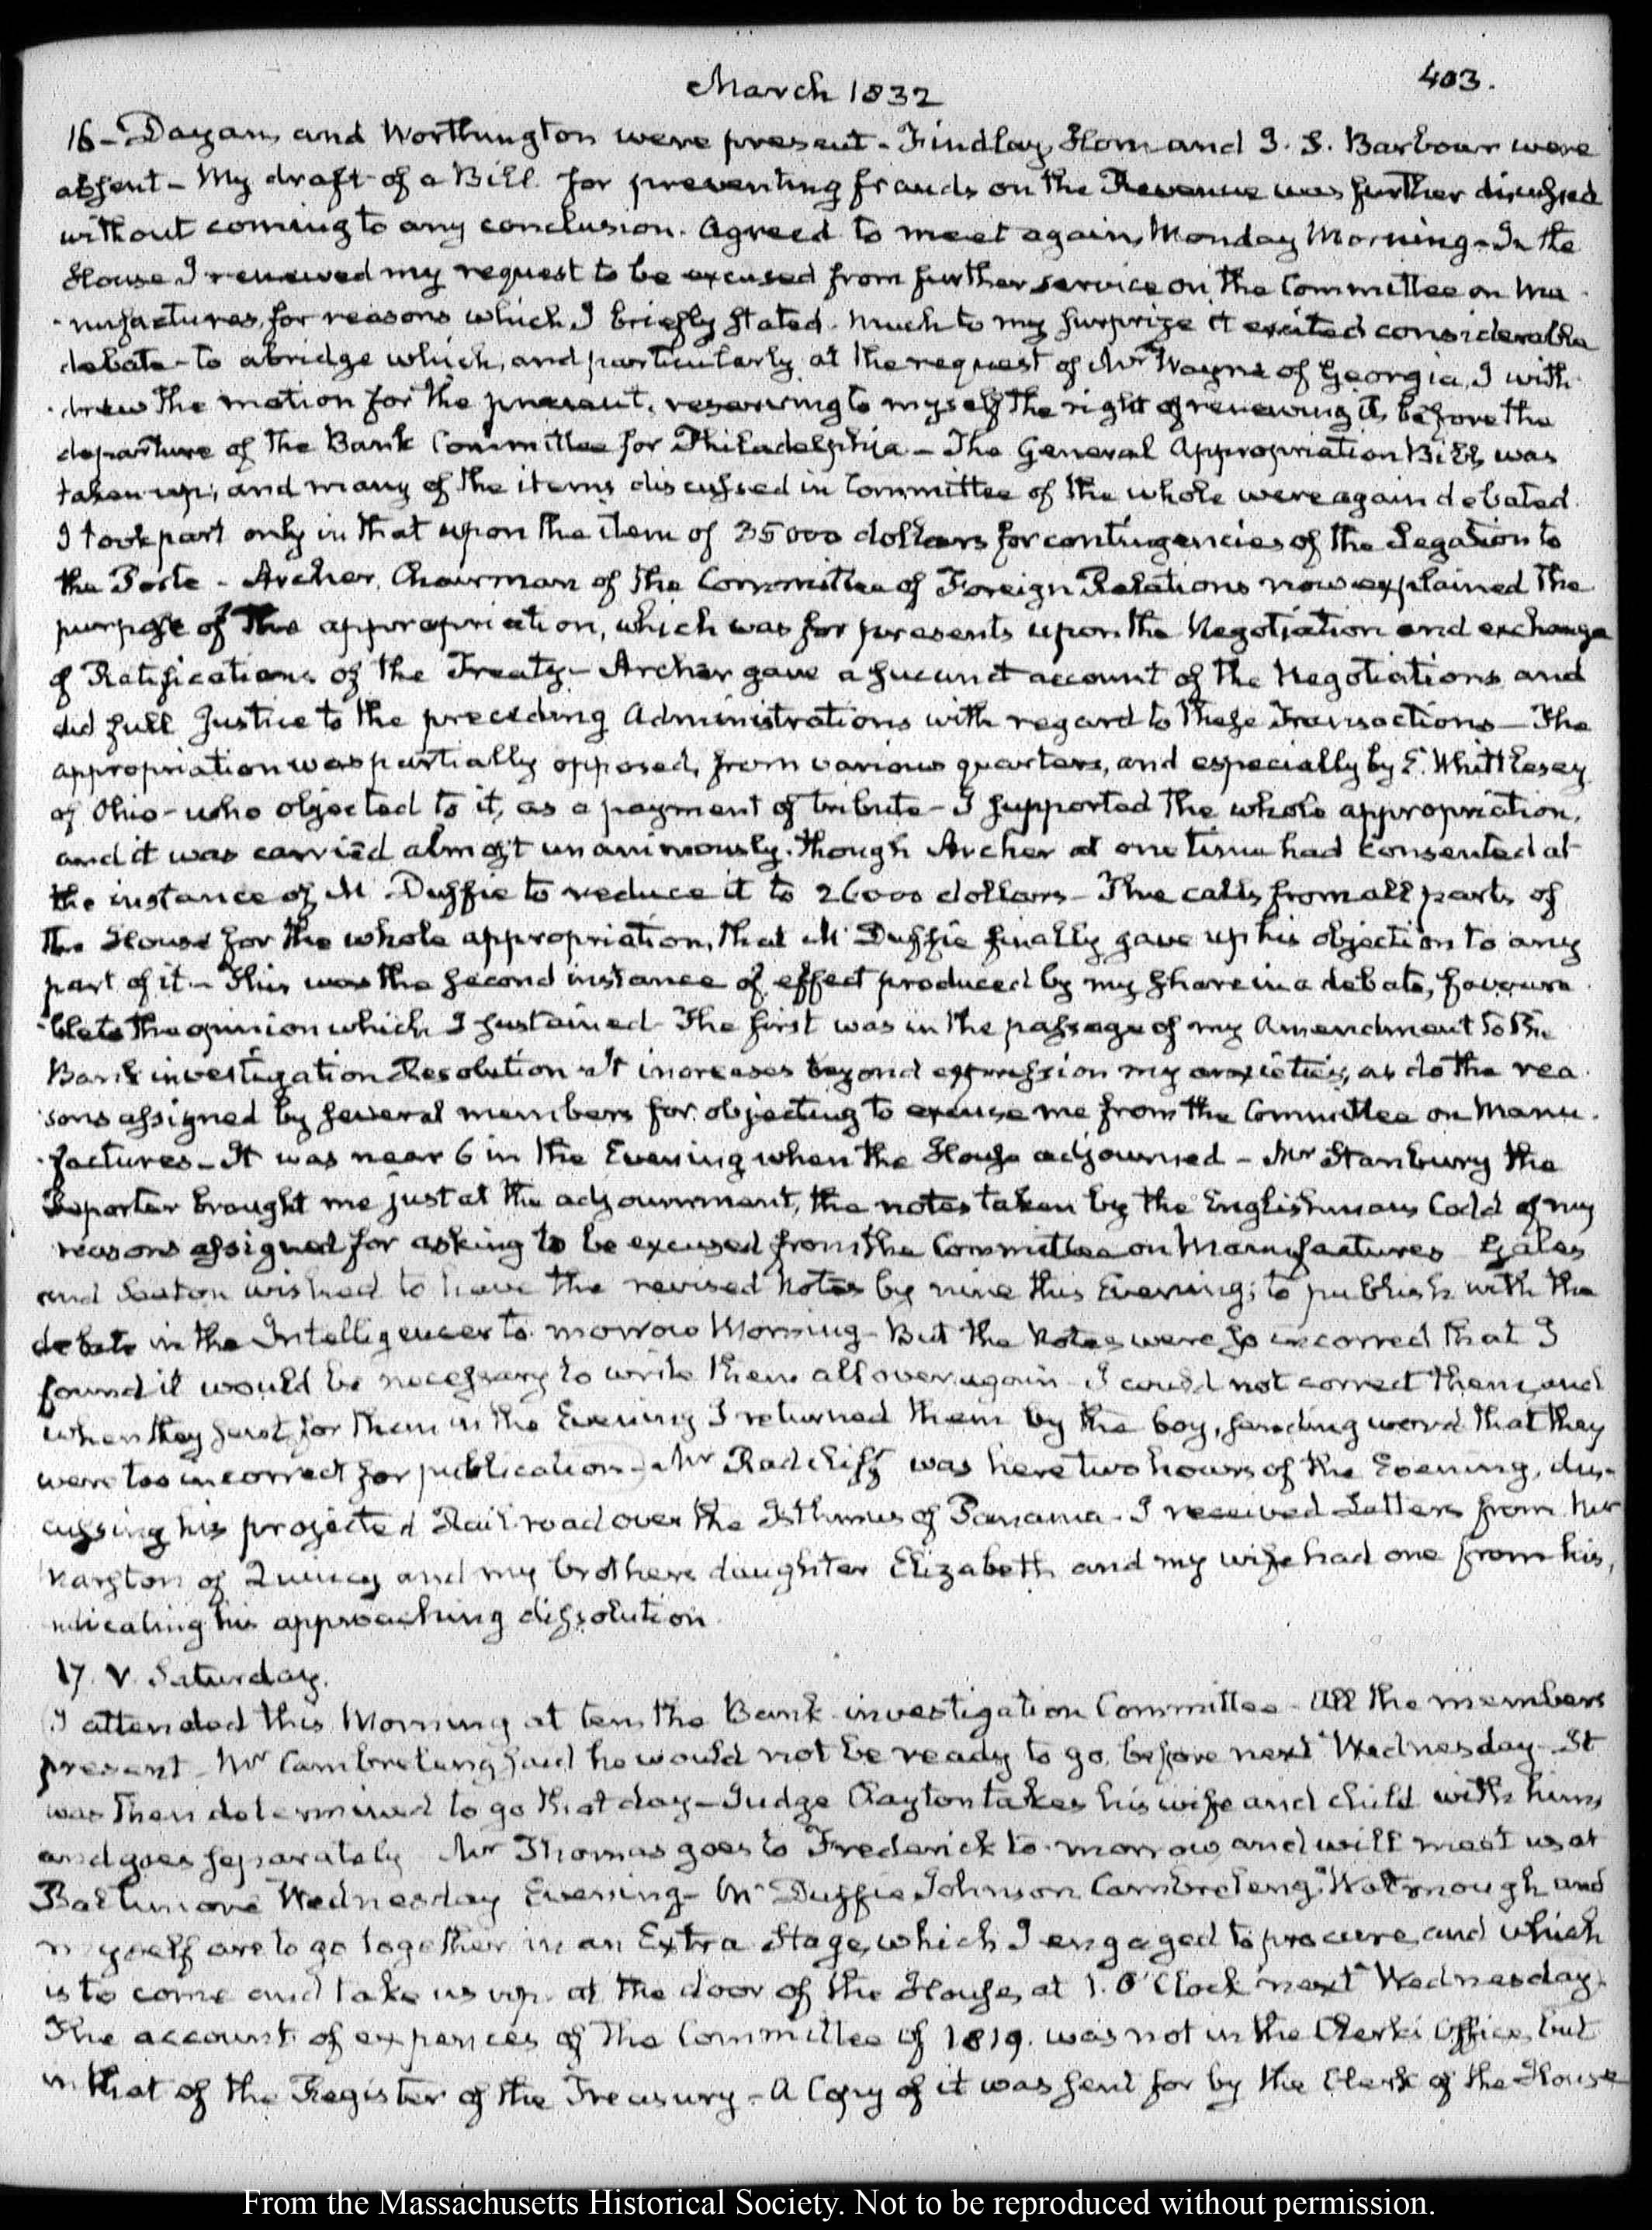 March 1832
403.
16 - Dayan, and Worthington were present - Findlay, Horn and J. S. Barbour were
absent - My draft of a Bill for preventing frauds on the Revenue was further discussed
without coming to any conclusion. Agreed to meet again, Monday Morning - In the
House I renewed my request to be excused from further service on the Committee on Ma-
-nufactures, for reasons which I briefly stated. Much to my surprize it excited considerable
debate - to abridge which, and particularly at the request of Mr Wayne of Georgia, I with-
-drew the motion for the present, reserving to myself the right of renewing it, before the
departure of the Bank Committee for Philadelphia - The General Appropriation Bill, was
taken up, and many of the items discussed in Committee of the whole were again debated.
I took part only in that upon the item of 35000 dollars for contingencies of the Legation to
the Porte - Archer, Chairman of the Committee of Foreign Relations now explained the
purpose of the appropriation, which was for presents upon the Negotiation and exchange
of Ratifications of the Treaty - Archer gave a succinct account of the Negotiations and
did full Justice to the preceding Administrations with regard to these Transactions - The
appropriation was partially opposed, from various quarters, and especially by E. Whittlesey
of Ohio - who objected to it, as a payment of tribute - I supported the whole appropriation,
and it was carried almost unanimously. Though Archer at one time had consented at
the instance of M Duffie to reduce it to 26000 dollars - The calls from all parts of
the House for the whole appropriation, that M Duffie finally gave up his objection to any
part of it - This was the second instance of effect produced by my share in a debate, favoura-
-ble to the opinion which I sustained - The first was in the passage of my Amendment to the
Bank investigation Resolution - It increases beyond expression my anxieties, as do the rea-
-sons assigned by several members for objecting to excuse me from the Committee on Manu-
-factures - It was near 6 in the Evening when the House adjourned - Mr Stansbury the
Reporter brought me just at the adjournment, the notes taken by the Englishman Codd of my
reasons assigned for asking to be excused from the Committee on Manufactures Gales
and Seaton wished to have the revised Notes by nine this Evening; to publish with the
debate in the Intelligencer to-morrow Morning - But the Notes were so incorrect that I
found it would be necessary to write them all over again - I could not correct them, and
when they sent for them in the Evening I returned them by the boy, sending word that they
were too incorrect for publication - Mr Radcliff was here two hours of the Evening, dis-
cussing his projected Rail-road over the Isthmus of Panama - I received Letters from Mr
Marston of Quincy and my brother's daughter Elizabeth and my wife had one from his,
indicating his approaching dissolution.
17. V. Saturday.
I attended this Morning at ten, the Bank investigation Committee - All the members
present - Mr Cambreleng said he would not be ready to go, before next Wednesday - It
was then determined to go that day - Judge Clayton takes his wife and child with him,
and goes separately Mr Thomas goes to Frederick to-morrow, and will meet us at
Baltimore Wednesday Evening - Mc Duffie Johnson Cambreleng, Watmough and
myself are to go together in an Extra Stage, which I engaged to procure, and which
is to come and take us up. at the door of the House, at 1. O'Clock next Wednesday.
The account of expences of the Committee of 1819. was not in the Clerk's Office, but
in that of the Register of the Treasury - A Copy of it was sent for by the Clerk of the House
From the Massachusetts Historical Society. Not to be reproduced without permission.